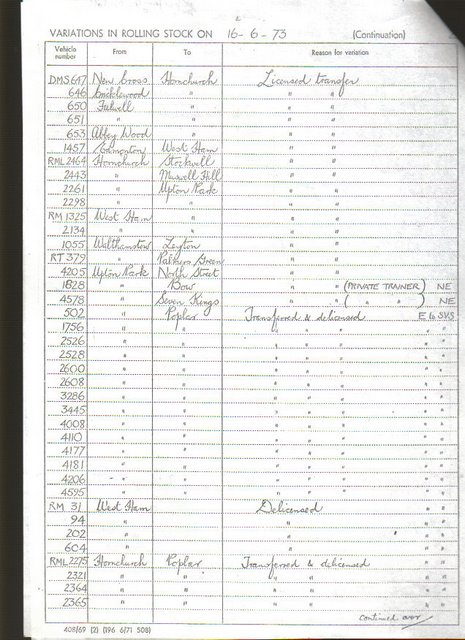 2
VARIATIONS IN ROLLING STOCK ON 16-6-73 (Continuation)
Vehicle number From To Reason for variation
DMS 647 New Cross Hornchurch Licensed transfer
646 Cricklewood " " "
650 Fulwell " " "
651 " " " "
653 Abbey Wood " " "
1457 Edmonton West Ham " "
RML 2464 Hornchurch Stockwell " "
2443 " Muswell Hill " "
2261 " Upton Park " "
2298 " " " "
RM 1325 West Ham " " "
2134 " " " "
1055 Walthamstow Leyton " "
RT 379 " Palmers Green " "
4205 Upton Park North Street " "
1828 " Bow " " (PRIVATE TRAINER) NE
4578 " Seven Kings " " ( " " ) NE
502 " Poplar Transferred & delicensed E to SVS
1756 " " " " " " "
2526 " " " " " " "
2528 " " " " " " "
2600 " " " " " " "
2608 " " " " " " "
3286 " " " " " " "
3445 " " " " " " "
4008 " " " " " " "
4110 " " " " " " "
4177 " " " " " " "
4181 " " " " " " "
4206 " " " " " " "
4595 " " " " " " "
RM 31 West Ham Delicensed " "
94 " " " "
202 " " " "
604 " " " "
RML 2275 Hornchurch Poplar Transferred & delicensed " "
2321 " " " " " " "
2364 " " " " " " "
2365 " " " " " " "
continued over
408/69 (2) (196 6/71 50B)